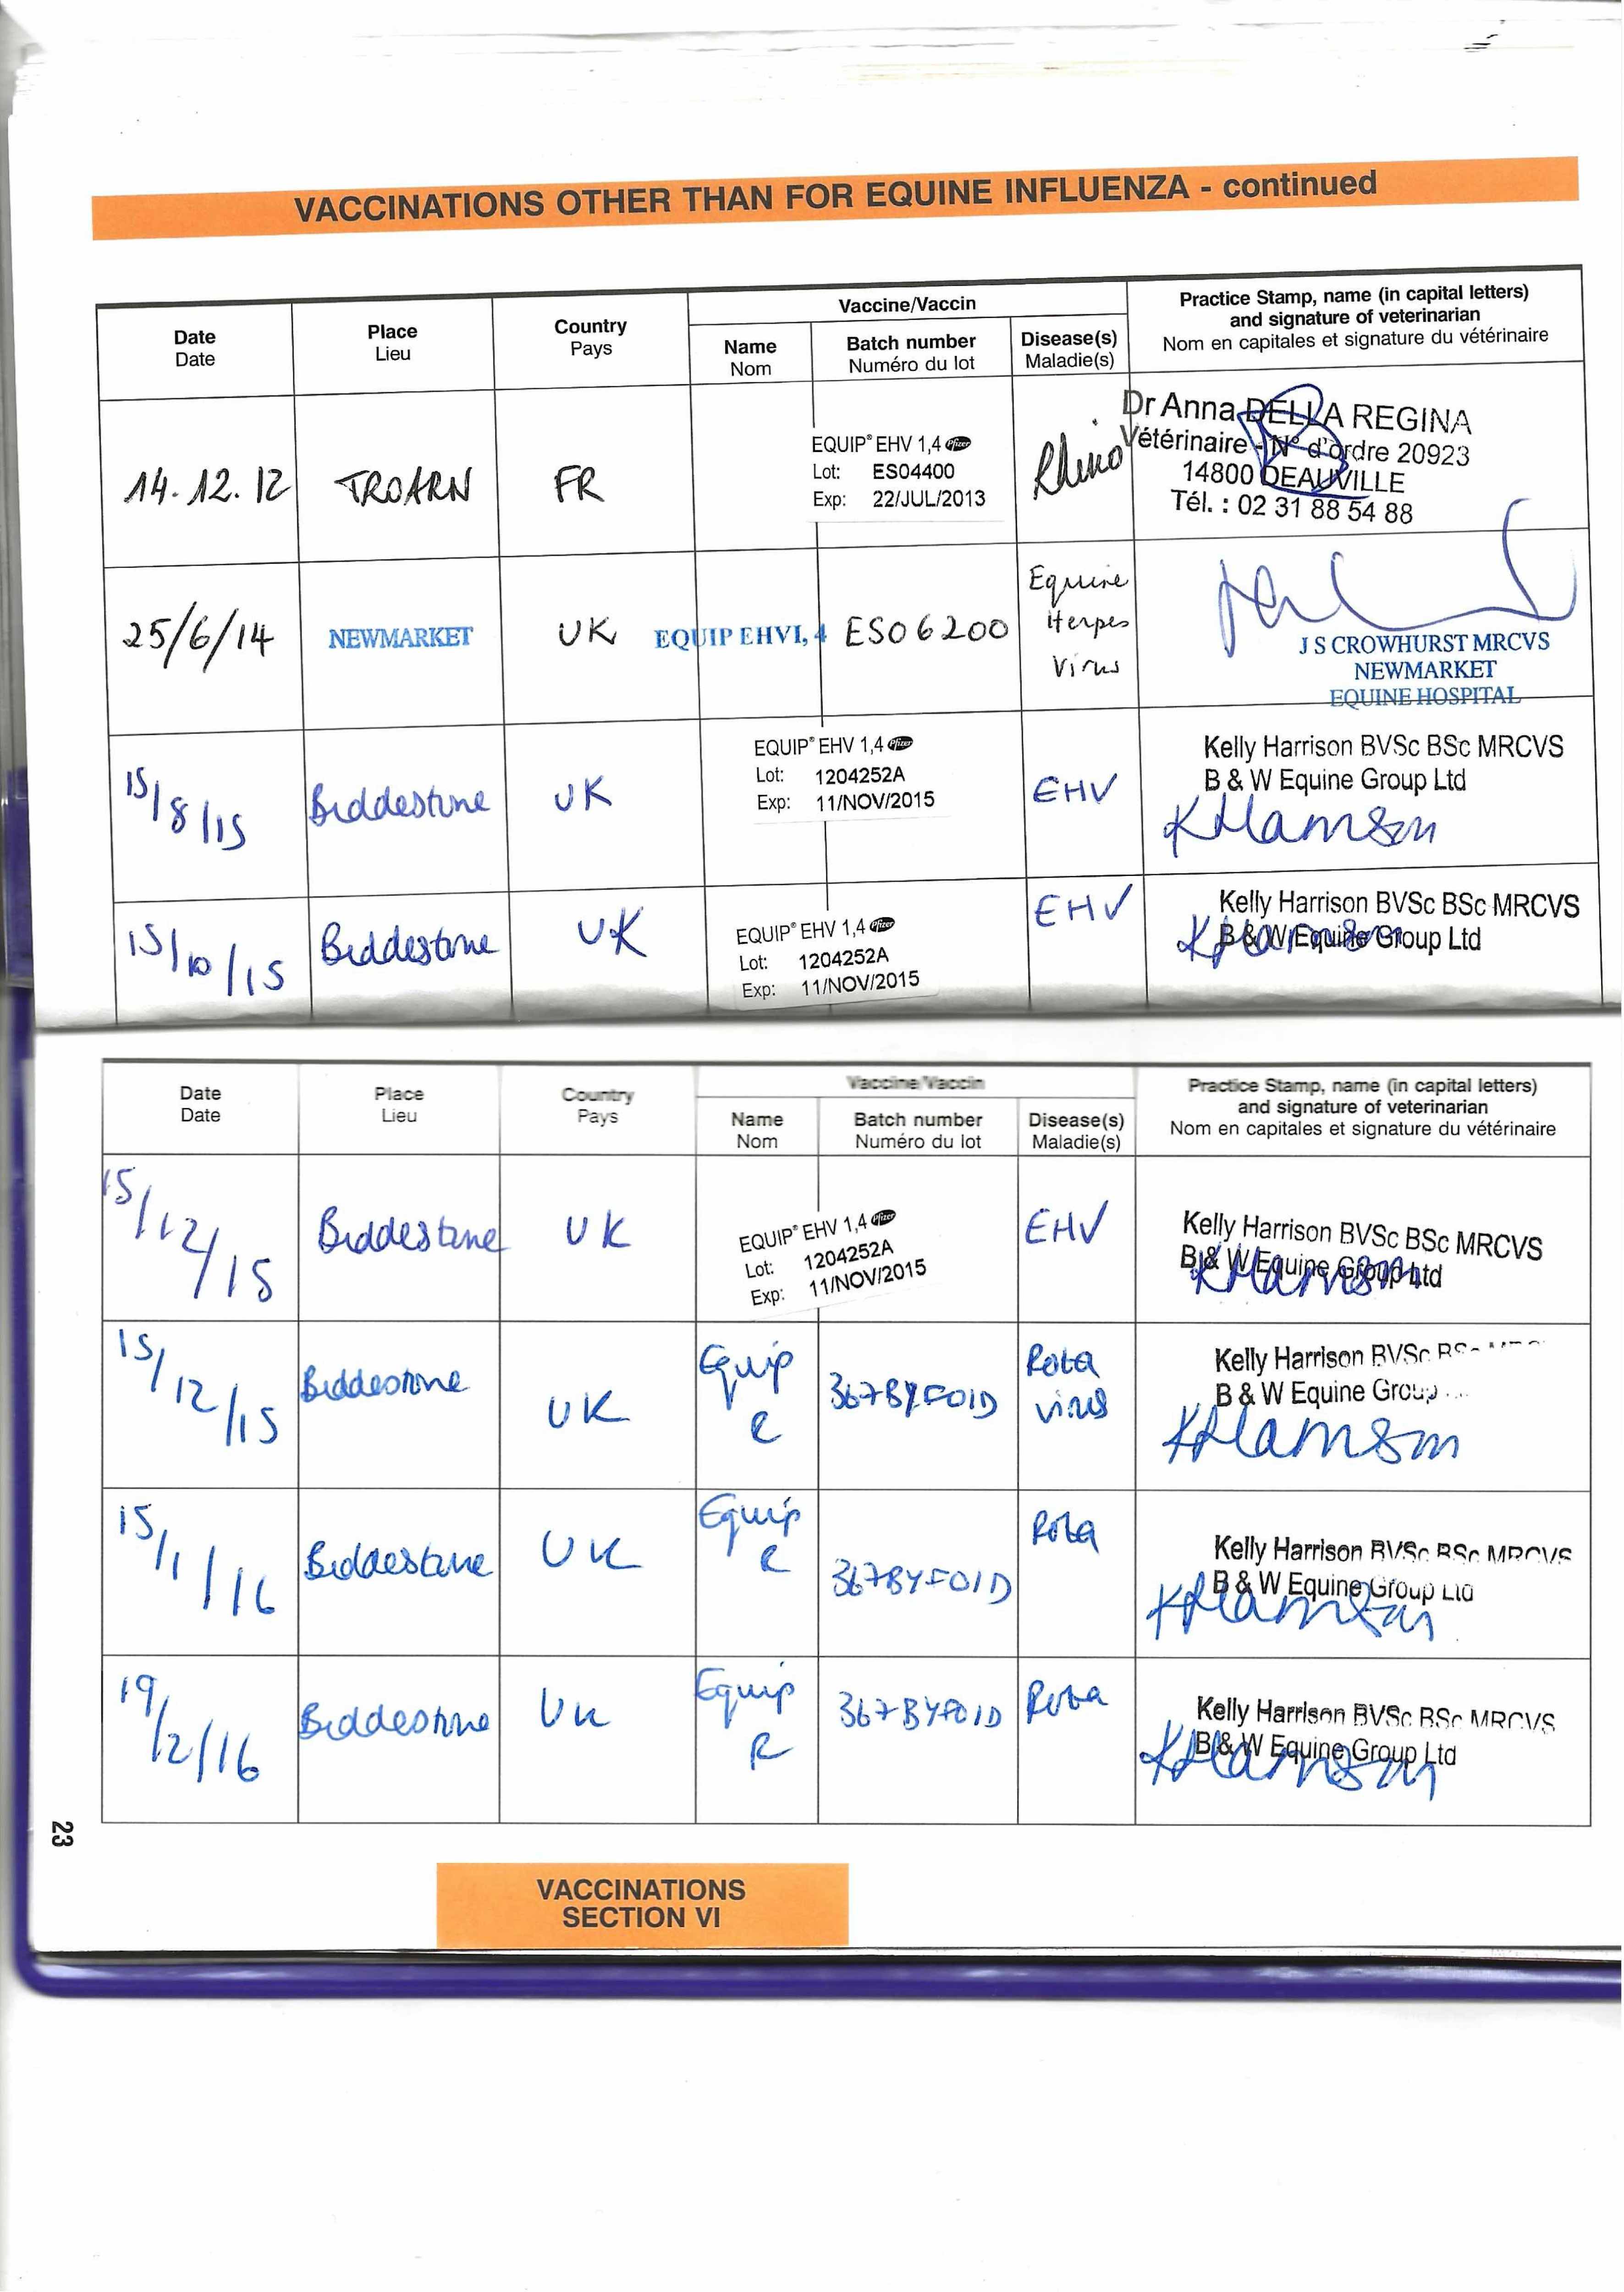 VACCINATIONS OTHER THAN FOR EQUINE INFLUENZA - continued
Date
Date
Place
Lieu
Country
Pays
Vaccine/Vaccin
Name
Nom
Batch number
Numéro du lot
Disease(s)
Maladie(s)
Practice Stamp, name (in capital letters)
and signature of veterinarian
Nom en capitales et signature du vétérinaire
14.12.12
TROARN
FR
EQUIP® EHV 1,4 Pfizer
Lot: ES04400
Exp: 22/JUL/2013
Rhino
Dr Anna DELLA REGINA
Vétérinaire - N° d'ordre 20923
14800 DEAUVILLE
Tél. : 02 31 88 54 88
25/6/14
NEWMARKET
UK
EQUIP EHV1, 4
ES06200
Equine
Herpes
Virus
J S CROWHURST MRCVS
NEWMARKET
EQUINE HOSPITAL
15/8/15
Biddestone
UK
EQUIP® EHV 1,4 Pfizer
Lot: 1204252A
Exp: 11/NOV/2015
EHV
Kelly Harrison BVSc BSc MRCVS
B & W Equine Group Ltd
KHarrison
15/10/15
Biddestone
UK
EQUIP® EHV 1,4 Pfizer
Lot: 1204252A
Exp: 11/NOV/2015
EHV
Kelly Harrison BVSc BSc MRCVS
B & W Equine Group Ltd
KHarrison
Date
Date
Place
Lieu
Country
Pays
Vaccine/Vaccin
Name
Nom
Batch number
Numéro du lot
Disease(s)
Maladie(s)
Practice Stamp, name (in capital letters)
and signature of veterinarian
Nom en capitales et signature du vétérinaire
15/12/15
Biddestone
UK
EQUIP® EHV 1,4 Pfizer
Lot: 1204252A
Exp: 11/NOV/2015
EHV
Kelly Harrison BVSc BSc MRCVS
B & W Equine Group Ltd
KHarrison
15/12/15
Biddestone
UK
Equip
R
367BYF01D
Rota
virus
Kelly Harrison BVSc BSc
B & W Equine Group
KHarrison
15/1/16
Biddestone
UK
Equip
R
367BYF01D
Rota
Kelly Harrison BVSc BSc MRCVS
B & W Equine Group Ltd
KHarrison
19/2/16
Biddestone
UK
Equip
R
367BYF01D
Rota
Kelly Harrison BVSc BSc MRCVS
B & W Equine Group Ltd
KHarrison
23
VACCINATIONS
SECTION VI